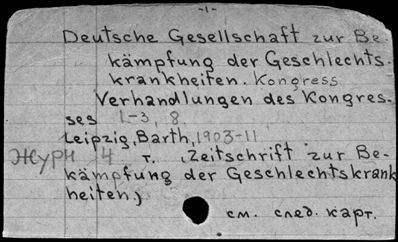 -1-
Deutsche Gesellschaft zur Be-
kämpfung der Geschlechts-
krankheiten. Kongress
Verhandlungen des Kongres-
ses 1-3, 8.
Leipzig, Barth, 1903-11
Журн 4 т. (Zeitschrift zur Be-
kämpfung der Geschlechtskrank
heiten.)
см. след. карт.